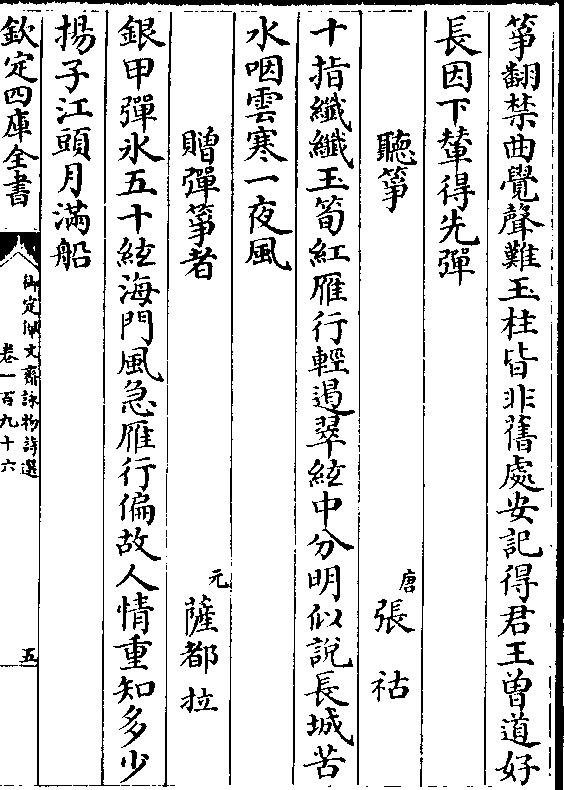 箏翻禁曲覺聲難玉柱皆非舊處安記得君王曾道好
長因下輦得先彈
聽箏 唐 張祜
十指纖纖玉筍紅雁行輕遏翠絃中分明似說長城苦
水咽雲寒一夜風
贈彈箏者 元 薩都拉
銀甲彈氷五十絃海門風急雁行偏故人情重知多少
揚子江頭月滿船
欽定四庫全書
御定佩文齋詠物詩選
卷一百九十六
五